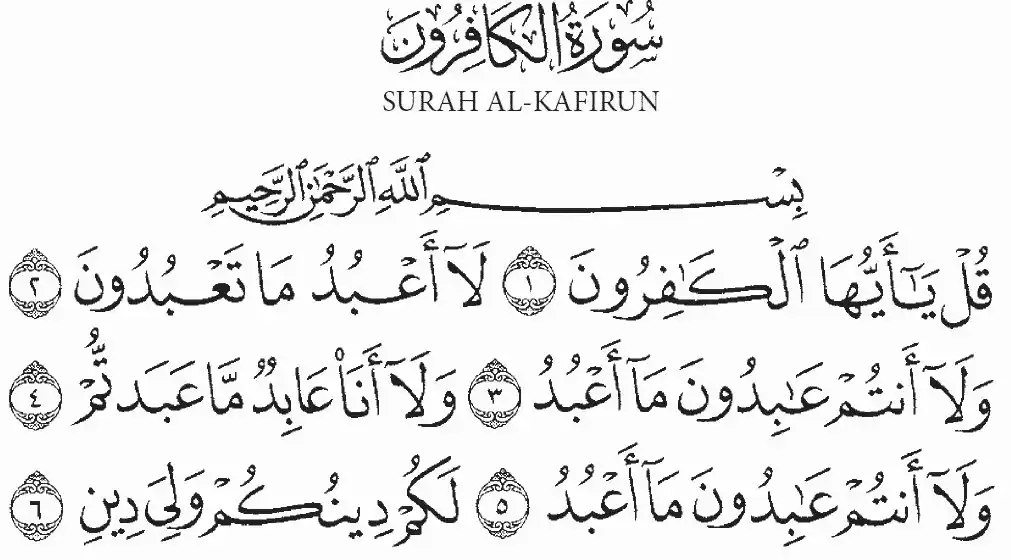 سُورَةُ الْكَافِرُونَ
SURAH AL-KAFIRUN
بِسْمِ ٱللَّهِ ٱلرَّحْمَٰنِ ٱلرَّحِيمِ
قُلْ يَٰٓأَيُّهَا ٱلْكَٰفِرُونَ ١ لَآ أَعْبُدُ مَا تَعْبُدُونَ ٢
وَلَآ أَنتُمْ عَٰبِدُونَ مَآ أَعْبُدُ ٣ وَلَآ أَنَا۠ عَابِدٌ مَّا عَبَدتُّمْ ٤
وَلَآ أَنتُمْ عَٰبِدُونَ مَآ أَعْبُدُ ٥ لَكُمْ دِينُكُمْ وَلِىَ دِينِ ٦